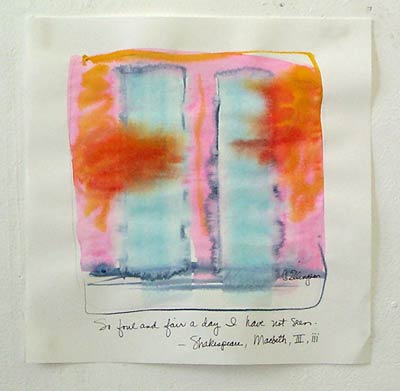 So foul and fair a day I have not seen.
— Shakespeare, Macbeth, III, iii